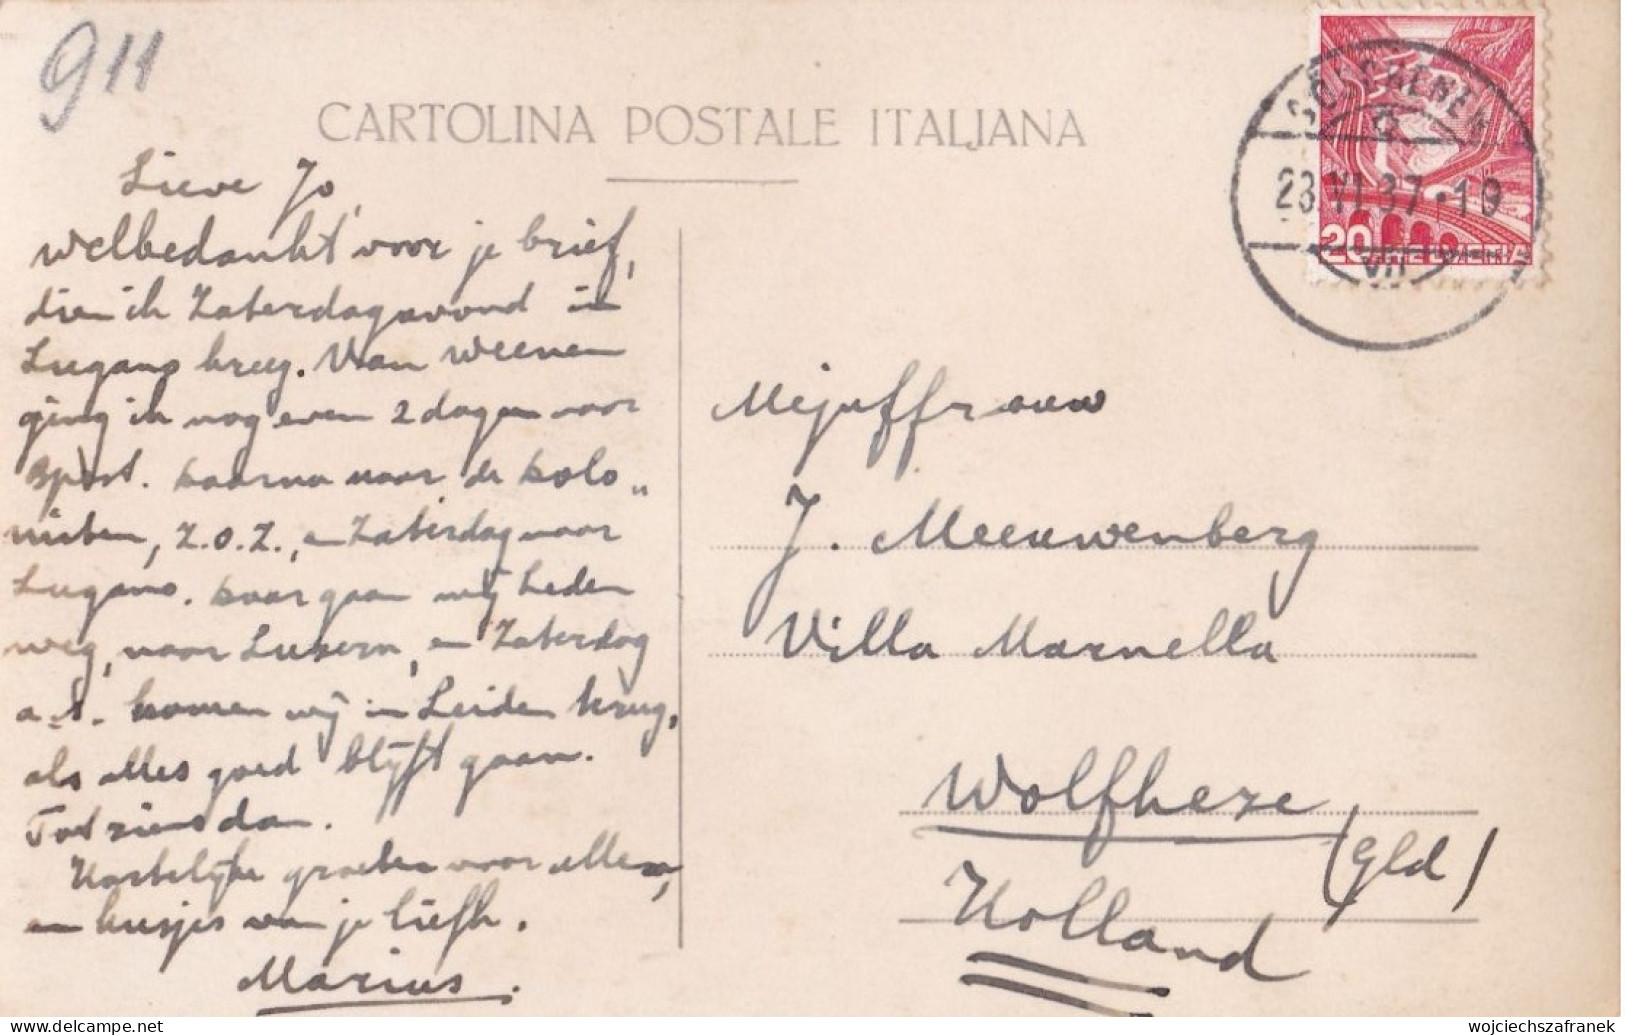 911
CARTOLINA POSTALE ITALJANA
GOESCHENEN
23.VI.37.-19
VII
20 HELVETIA
Lieve Jo,
welbedankt voor je brief,
dien ik Zaterdagavond in
Lugano kreeg. Van Weenen
ging ik nog even 2 dagen naar
daarna naar de kolo„
nisten, Z.O.Z., en Zaterdag naar
Lugano. Daar gaan wij heden
weg, naar Luzern, en Zaterdag
a.s. komen wij in Leiden terug,
als alles goed blijft gaan.
Tot ziens dan.
Hartelijke groeten voor allen,
en kusjes van je liefh.
Marius.
Mejuffrouw
J. Meeuwenberg
Villa Marnella
Wolfheze
(Gld)
Holland
delcampe.net
wojciechszafranek